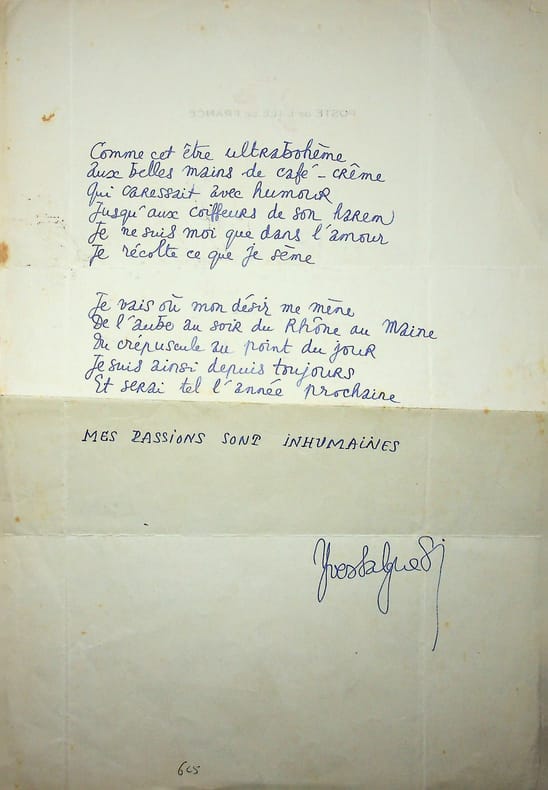 POSTE DE L'ILE DE FRANCE
Comme cet être ultrabohème
aux belles mains de café-crème
qui caressait avec humour
Jusqu'aux coiffeurs de son harem
Je ne suis moi que dans l'amour
Je récolte ce que je sème
Je vais où mon désir me mène
De l'aube au soir du Rhône au Maine
Du crépuscule au point du jour
Je suis ainsi depuis toujours
Et serai tel l'année prochaine
MES PASSIONS SONT INHUMAINES
Yves Salgues